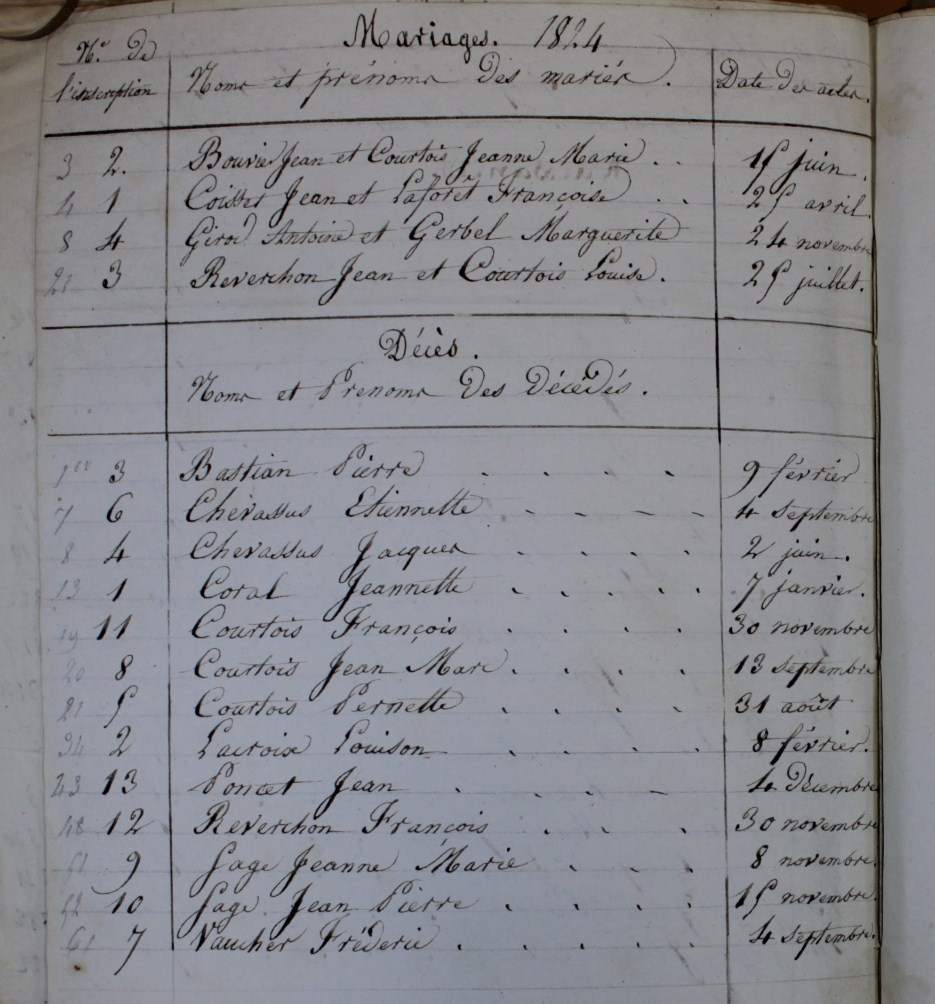 Mariages. 1824
N.º de l'inscription Noms et prénoms des mariés. Date des actes.
3 2. Bouvier Jean et Courtois Jeanne Marie . . 15 juin.
4 1 Coisset Jean et Laforêt Françoise . . 25 avril.
8 4 Girod Antoine et Gerbel Marguerite 24 novembre
21 3 Reverchon Jean et Courtois Louise. 25 juillet.
Décès.
Noms et Prenoms Des Décédés.
1er 3 Bastian Pierre . . . . 9 février
7 6 Chevassus Etiennette . - - - - 4 septembre
8 4 Chevassus Jacques . . . . 2 juin.
13 1 Coral Jeannette . . . . . 7 janvier.
19 11 Courtois François . . . . 30 novembre
20 8 Courtois Jean Marc . . . . 13 septembre
21 5 Courtois Pernette . . . . 31 août
34 2 Lacroix Louison . . . . 8 février.
43 13 Poncet Jean . . . . - 4 Décembre
48 12 Reverchon François . . . 30 novembre
51 9 Sage Jeanne Marie . . . 8 novembre.
52 10 Sage Jean Pierre . . . . . 15 novembre.
61 7 Vaucher Fréderic . . . . . 4 septembre.